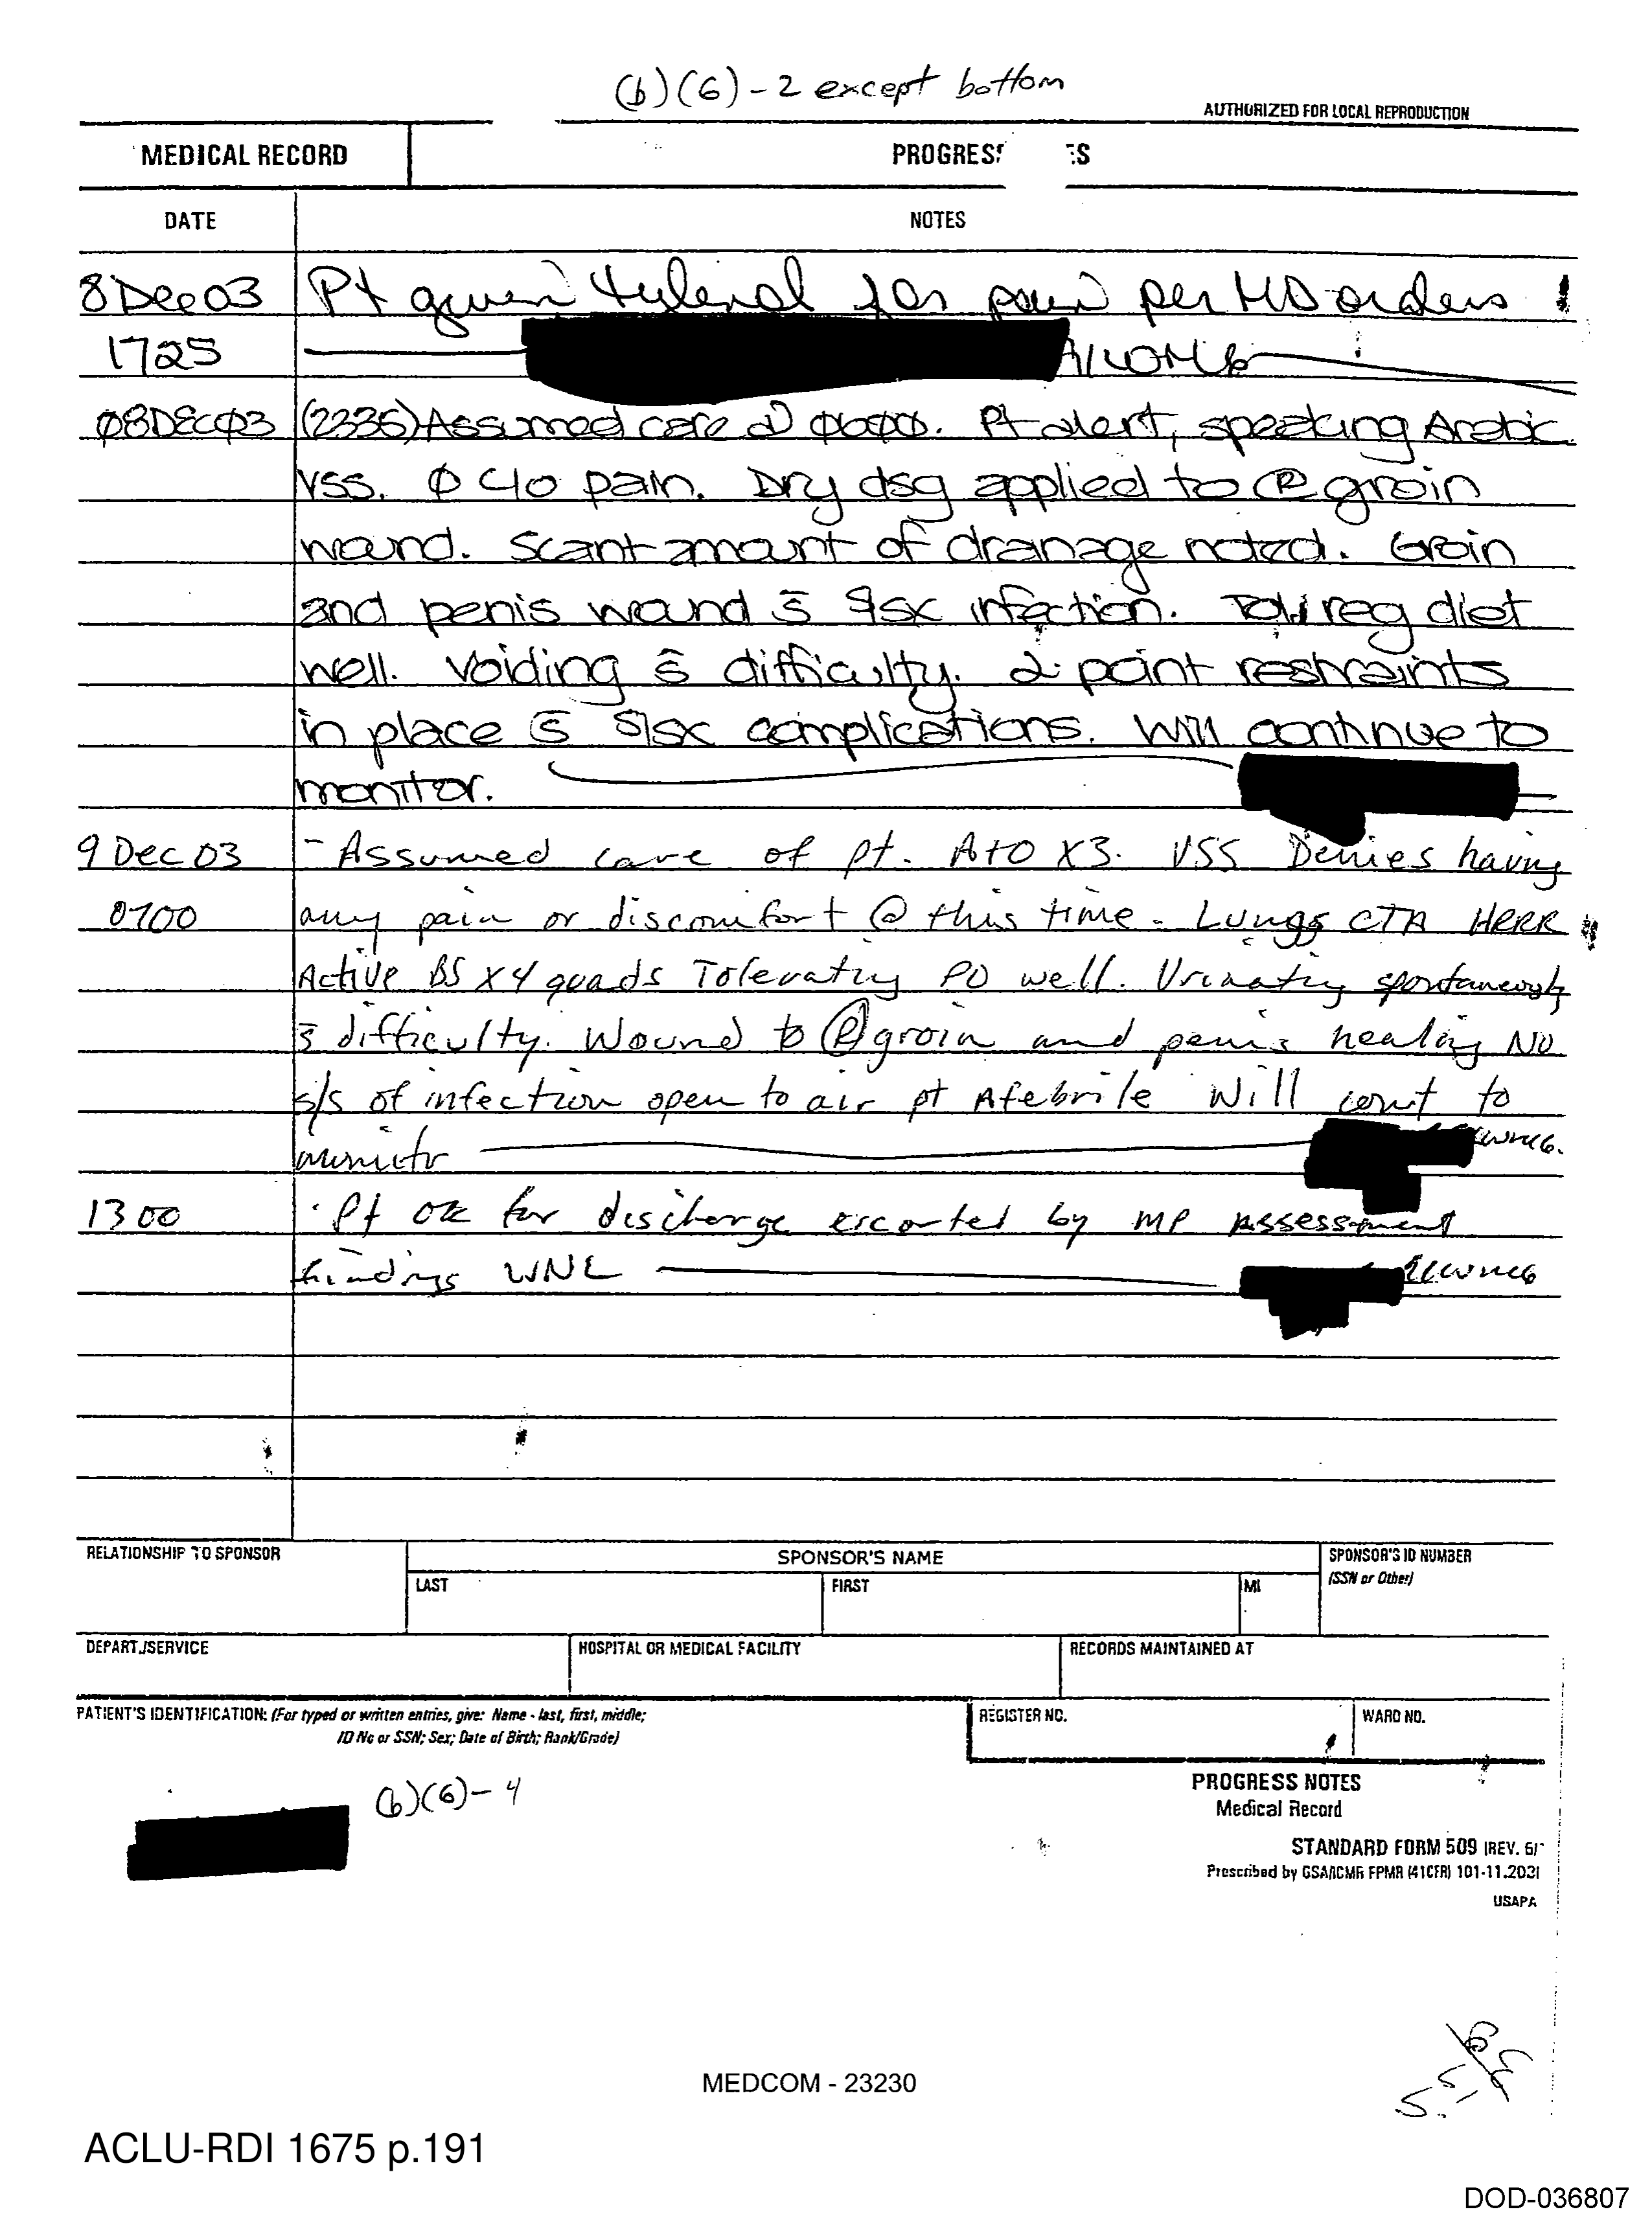 (b)(6)-2 except bottom
AUTHORIZED FOR LOCAL REPRODUCTION
MEDICAL RECORD
PROGRES ES
DATE
NOTES
8 Dec 03 Pt given tylenol for pain per MD orders
1725
08DEC03 (2335) Assumed care @ Pt alert, speaking Arabic.
VSS. Ø c/o pain. Dry dsg applied to Ⓡ groin
wound. Scant amount of dranage noted. Groin
and penis wound s̄ s/sx infection. reg diet
well. Voiding s̄ difficulty. 2 point restraints
in place s̄ s/sx complications. Will continue to
monitor.
9 Dec 03 - Assumed care of pt. A+O X3. VSS Denies having
0700 any pain or discomfort @ this time - Lungs CTA HRRR
Active BS X 4 quads Tolerating PO well. Urinating spontaneously
s̄ difficulty. Wound to Ⓡ groin and penis healing NO
s/s of infection open to air pt Afebrile Will cont to
monitor
1300 Pt ok for discharge escorted by MP assessment
findings WNL
RELATIONSHIP TO SPONSOR
SPONSOR'S NAME
SPONSOR'S ID NUMBER
(SSN or Other)
LAST
FIRST
MI
DEPART./SERVICE
HOSPITAL OR MEDICAL FACILITY
RECORDS MAINTAINED AT
PATIENT'S IDENTIFICATION: (For typed or written entries, give: Name - last, first, middle;
ID No or SSN; Sex; Date of Birth; Rank/Grade)
REGISTER NO.
WARD NO.
(b)(6)-4
PROGRESS NOTES
Medical Record
STANDARD FORM 509 (REV. 5/
Prescribed by GSA/ICMR FPMR (41CFR) 101-11.203(
USAPA
MEDCOM - 23230
ACLU-RDI 1675 p.191
DOD-036807